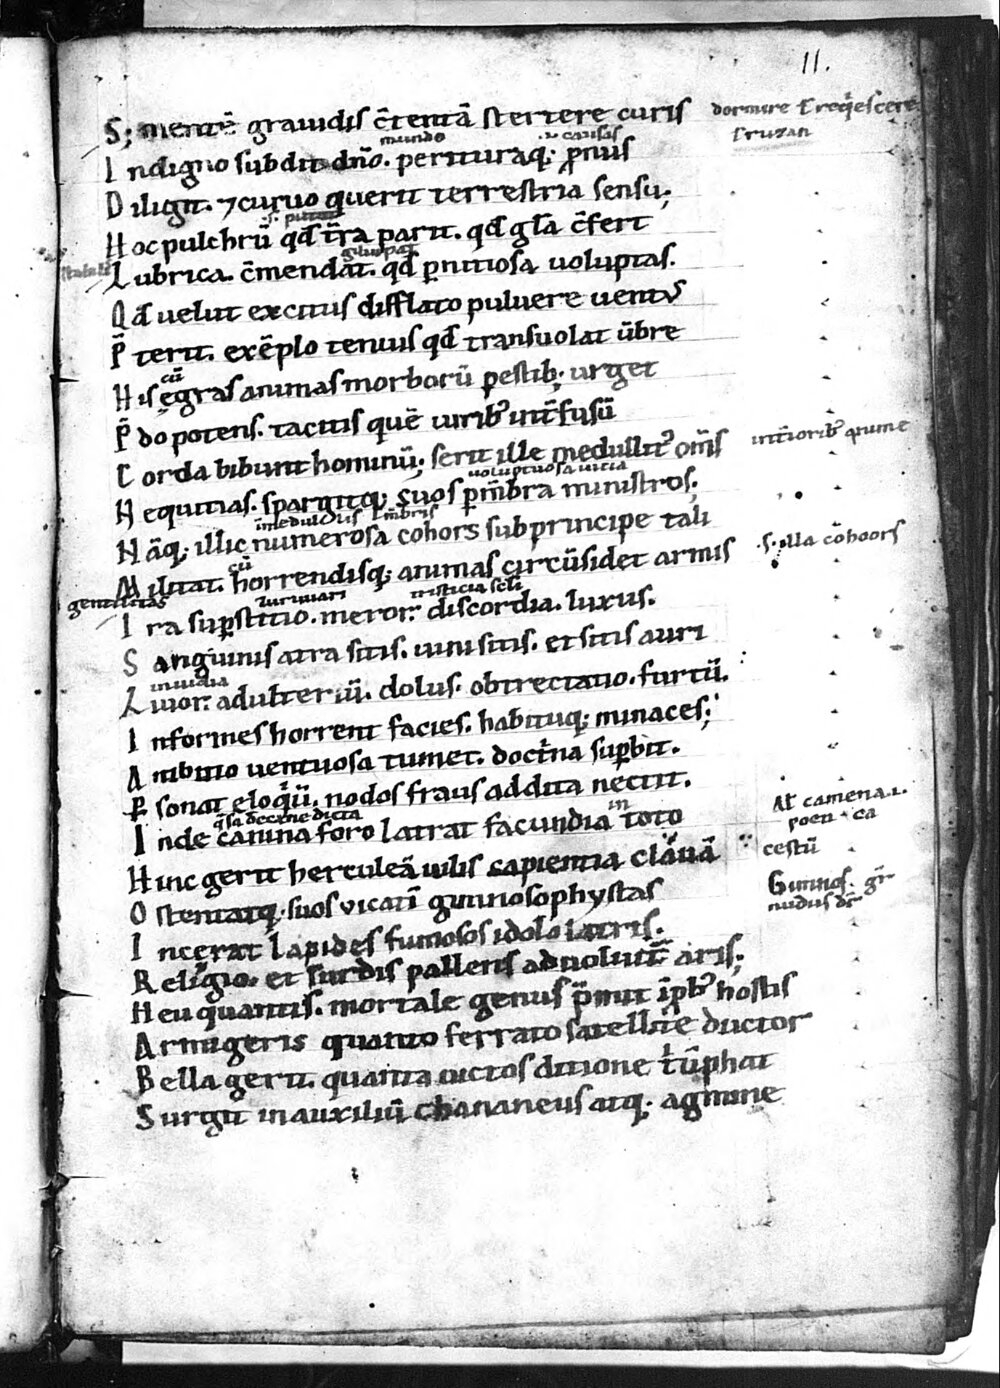 11.
S; mentē grauidis c̄tentā stertere curis
dormire ł req̄escere
ł ruzan
mundo
causas
I ndigno subdit dn̄o. perituraq; p̄nius
D iligit. ⁊ curuo querit terrestria sensu;
.s. putat
H oc pulchrū qđ tr̄a parit. qđ gl̄a c̄fert
L ubrica. c̄mendat. qđ p̄nitiosa uoluptas.
Q đ uelut excitus difflato puluere uentus
P̄ terit. exēplo tenuis qđ transuolat ūbre
cū
H is ęgras animas morborū pestib; urget
P̄ do potens. tacitis quē uirib; int̄fusū
C orda bibunt hominū; serit ille medullit' om̄s
int̄iorib' anime
uoluptuosa uitia
N equitias. spargitq; suos p̄ mēbra ministros;
medullis ł mēbris
N āq; illic numerosa cohors sub principe tali
.s. illa cohoors
cū
M ilitat. horrendisq; animas circūsidet armis
gentilitas
tristicia seli
I ra sup̄stitio. meror. discordia. luxus.
S anguinis atra sitis. uini sitis. et sitis auri
inuidia
L iuor. adulteriū. dolus. obtrectatio. furtū.
I nformes horrent facies. habituq; minaces;
A mbitio uentuosa tumet. doctrina sup̄bit.
P̄ sonat eloq̄iū. nodos fraus addita nectit.
At camena .i.
poetica
in
I nde canina foro latrat facundia toto
H inc gerit herculeā uilis sapientia clauā
cestū
O stentatq; suos vicatī gimnosophystas
Gimnos. gr̄
nudus dr̄
I ncerat lapides fumosos idololatris.
R eligio. et surdis pallens aduoluit' aris;
H eu quantis. mortale genus p̄mit īprob' hostis
A rmigeris quanto ferrato satellite ductor
B ella gerit. quanta uictos ditione t'ūphat
S urgit in auxiliū chananeus atq; agmine